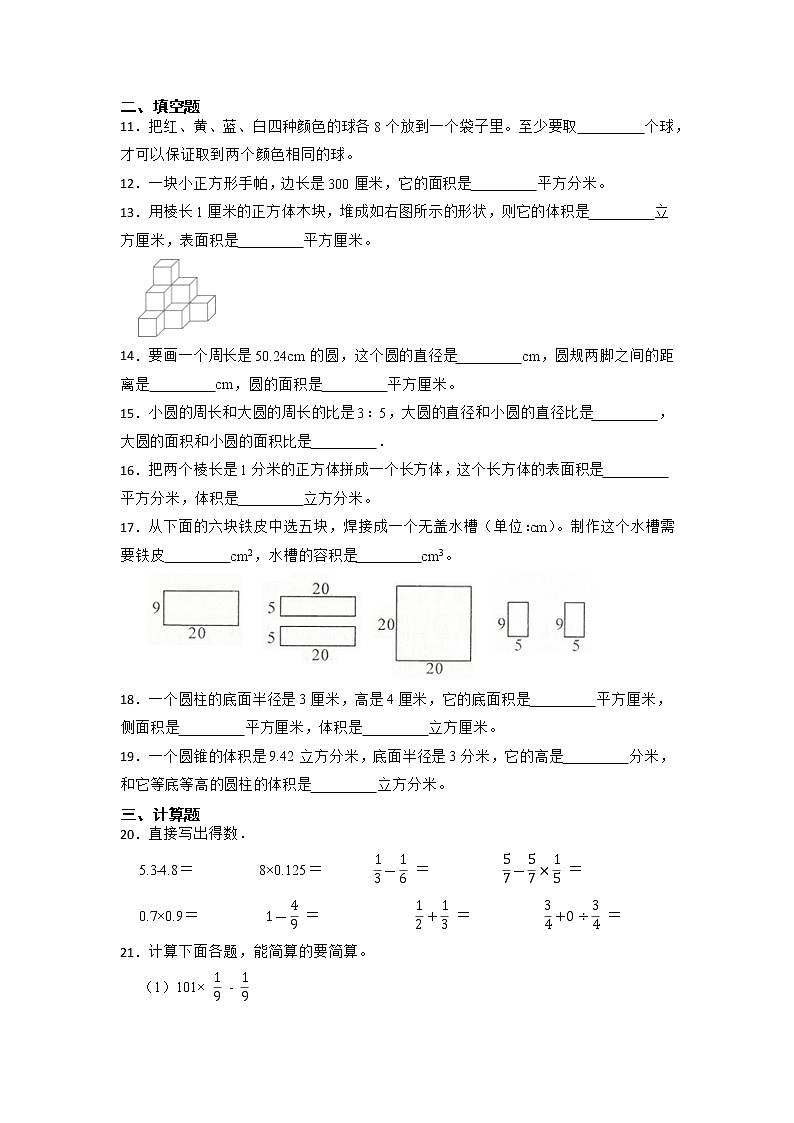 二、填空题
11．把红、黄、蓝、白四种颜色的球各 8 个放到一个袋子里。至少要取_________个球，
才可以保证取到两个颜色相同的球。
12．一块小正方形手帕，边长是 300 厘米，它的面积是_________平方分米。
13．用棱长 1 厘米的正方体木块，堆成如右图所示的形状，则它的体积是_________立
方厘米，表面积是_________平方厘米。
14．要画一个周长是 50.24cm 的圆，这个圆的直径是_________cm，圆规两脚之间的距
离是_________cm，圆的面积是_________平方厘米。
15．小圆的周长和大圆的周长的比是 3：5，大圆的直径和小圆的直径比是_________，
大圆的面积和小圆的面积比是_________．
16．把两个棱长是 1 分米的正方体拼成一个长方体，这个长方体的表面积是_________
平方分米，体积是_________立方分米。
17．从下面的六块铁皮中选五块，焊接成一个无盖水槽（单位：cm）。制作这个水槽需
要铁皮_________cm²，水槽的容积是_________cm³。
9 20 5 20 5 20 20 20 9 5 9 5
18．一个圆柱的底面半径是 3 厘米，高是 4 厘米，它的底面积是_________平方厘米，
侧面积是_________平方厘米，体积是_________立方厘米。
19．一个圆锥的体积是 9.42 立方分米，底面半径是 3 分米，它的高是_________分米，
和它等底等高的圆柱的体积是_________立方分米。
三、计算题
20．直接写出得数．
5.3-4.8＝ 8×0.125＝ 1/3－1/6＝ 5/7－5/7×1/5＝
0.7×0.9＝ 1－4/9＝ 1/2+1/3＝ 3/4+0÷3/4＝
21．计算下面各题，能简算的要简算。
（1）101× 1/9 - 1/9